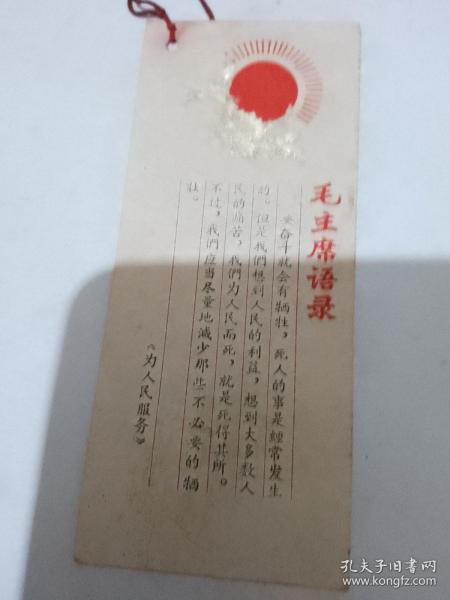 毛主席语录
要奋斗就会有牺牲，死人的事是經常发生
的。但是我們想到人民的利益，想到大多数人
民的痛苦，我們为人民而死，就是死得其所。
不过，我們应当尽量地減少那些不必要的牺
牲。
《为人民服务》
孔夫子旧书网
www.kongfz.com